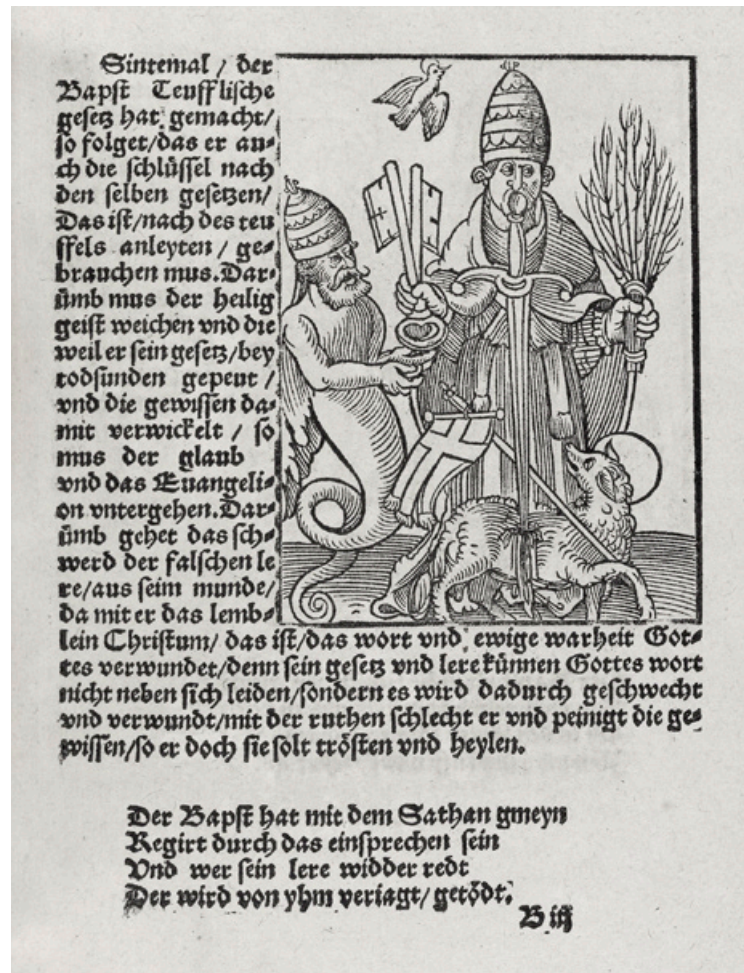 Sintemal / der
Bapst Teufflische
gesetz hat gemacht/
so folget/das er au⸗
ch die schlüssel nach
den selben gesetzen/
Das ist/nach des teu
ffels anleyten / ge⸗
brauchen mus. Dar⸗
ümb mus der heilig
geist weichen vnd die
weil er sein gesetz/bey
todsunden gepeut /
vnd die gewissen da⸗
mit verwickelt / so
mus der glaub
vnd das Euangeli⸗
on vntergehen. Dar⸗
ümb gehet das sch⸗
werd der falschen le
re/aus seim munde/
da mit er das lemb⸗
lein Christum/ das ist/das wort vnd ewige warheit Got⸗
tes verwundet/denn sein gesetz vnd lere künnen Gottes wort
nicht neben sich leiden/sondern es wird dadurch geschwecht
vnd verwundt/mit der ruthen schlecht er vnd peinigt die ge⸗
wissen/so er doch sie solt trösten vnd heylen.
Der Bapst hat mit dem Sathan gmeyn
Regirt durch das einsprechen sein
Vnd wer sein lere widder redt
Der wird von yhm veriagt/ getödt.
B iij